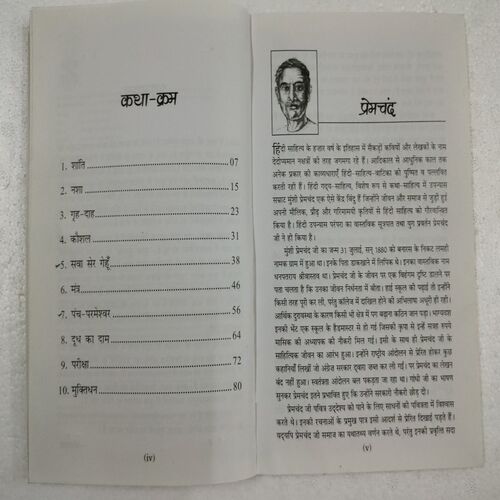 कथा-क्रम
1. शांति 07
2. नशा 15
3. गृह-दाह 23
4. कौशल 31
5. सवा सेर गेहूँ 38
6. मंत्र 46
7. पंच-परमेश्वर 56
8. दूध का दाम 64
9. परीक्षा 72
10. मुक्तिधन 80
(iv)
प्रेमचंद
हिंदी साहित्य के हजार वर्ष के इतिहास में सैकड़ों कवियों और लेखकों के नाम
देदीप्यमान नक्षत्रों की तरह जगमगा रहे हैं। आदिकाल से आधुनिक काल तक
अनेक प्रकार की काव्यधाराएँ हिंदी-साहित्य-वाटिका को पुष्पित व पल्लवित
करती रही हैं। हिंदी गद्य-साहित्य, विशेष रूप से कथा-साहित्य में उपन्यास
सम्राट मुंशी प्रेमचंद एक ऐसे केंद्र बिंदु हैं जिन्होंने जीवन और समाज से जुड़ी हुई
अपनी मौलिक, प्रौढ़ और गरिमामयी कृतियों से हिंदी साहित्य को गौरवान्वित
किया है। हिंदी उपन्यास परंपरा का वास्तविक सूत्रपात तथा युग प्रवर्तन प्रेमचंद
जी ने ही किया है।
मुंशी प्रेमचंद जी का जन्म 31 जुलाई, सन् 1880 को बनारस के निकट लमही
नामक ग्राम में हुआ था। इनके पिता डाकखाने में लिपिक थे। इनका वास्तविक नाम
धनपतराय श्रीवास्तव था। प्रेमचंद जी के जीवन पर एक विहंगम दृष्टि डालने पर
पता चलता है कि उनका जीवन निर्धनता में बीता। हाई स्कूल की पढ़ाई तो इन्होंने
किसी तरह पूरी कर ली, परंतु कॉलेज में दाखिल होने की अभिलाषा अधूरी ही रही।
आर्थिक दुरावस्था के कारण किसी भी क्षेत्र में पग बढ़ाना कठिन जान पड़ा। भाग्यवश
इनकी भेंट एक स्कूल के हैडमास्टर से हो गई जिसकी कृपा से इन्हें सत्रह रुपये
मासिक की अध्यापक की नौकरी मिल गई। इसी के साथ ही प्रेमचंद जी के
साहित्यिक जीवन का आरंभ हुआ। इन्होंने राष्ट्रीय आंदोलन से प्रेरित होकर कुछ
कहानियाँ लिखीं जो अंग्रेज सरकार द्वारा जब्त कर ली गईं। पर प्रेमचंद का लेखन
बंद नहीं हुआ। स्वतंत्रता आंदोलन बल पकड़ता जा रहा था। गांधी जी के भाषण
सुनकर प्रेमचंद इतने प्रभावित हुए कि उन्होंने सरकारी नौकरी छोड़ दी।
प्रेमचंद जी पवित्र उद्देश्य को पाने के लिए साधनों को पवित्रता में विश्वास
करते थे। इनकी रचनाओं के प्रमुख पात्र इसी आदर्श से प्रेरित दिखाई पड़ते हैं।
यद्यपि प्रेमचंद जी समाज का यथातथ्य वर्णन करते थे, परंतु इनकी प्रवृत्ति सदा
(v)